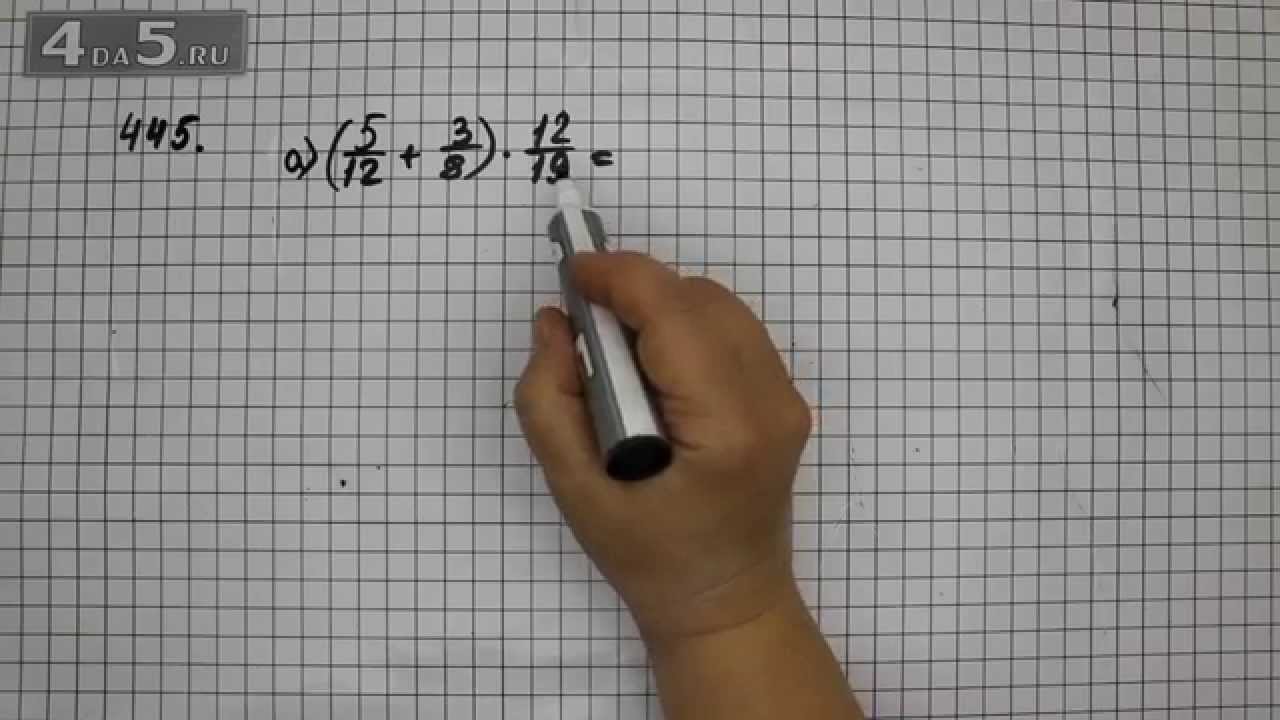 4DA5.RU
445. а) (5/12 + 3/8) · 12/19 =